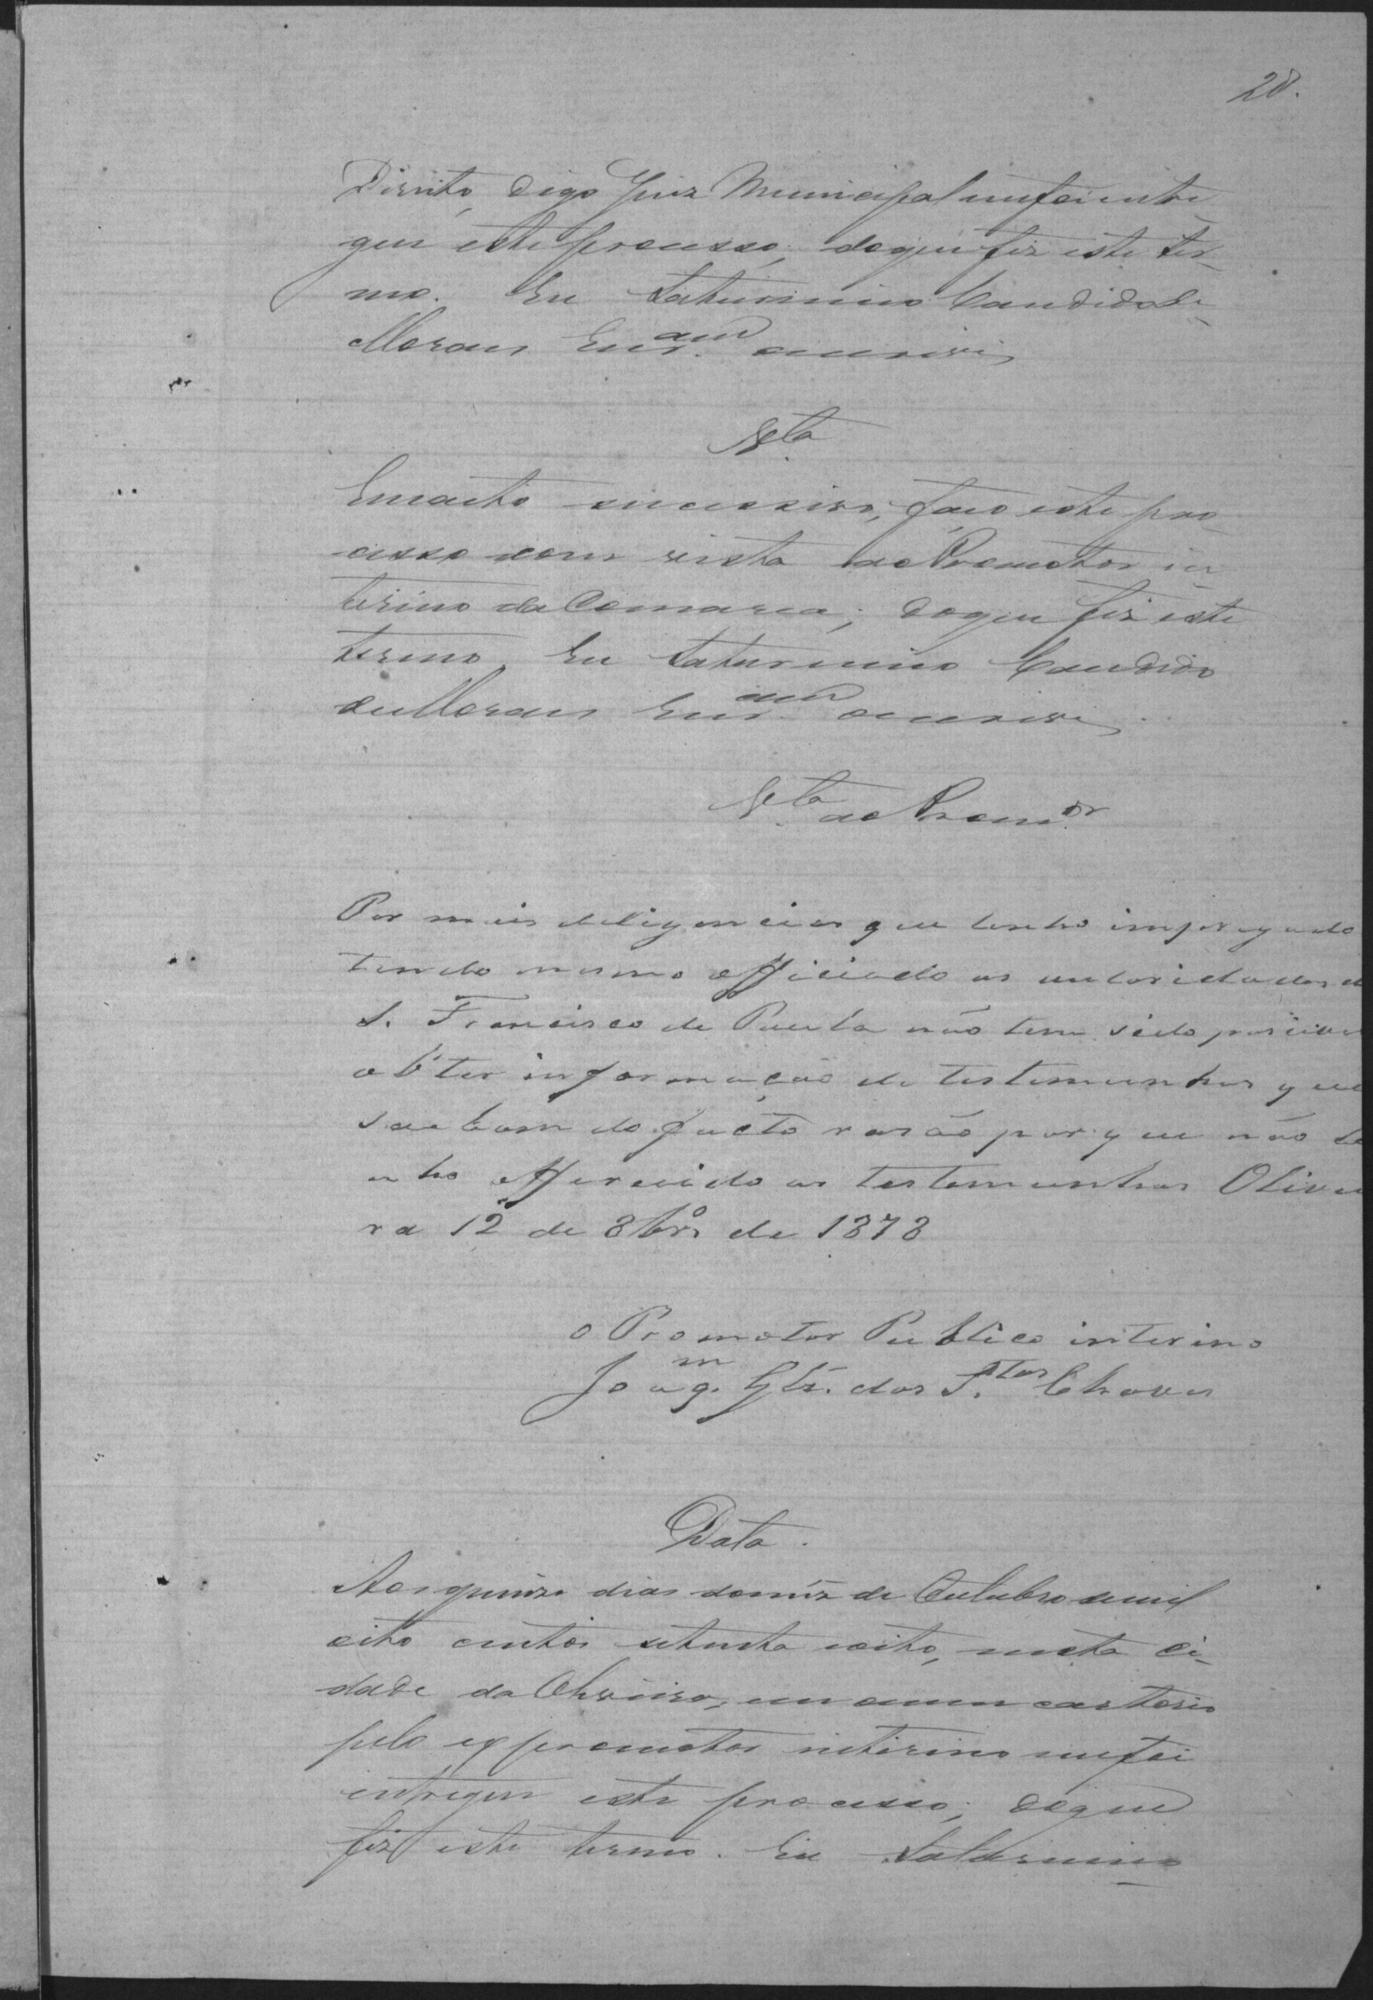 28.
Direito, digo Juiz Municipal me foi entre
gue este processo; do que fiz este ter-
mo. Eu Saturnino Candido de
Moraes Escr.am o escrevi
V.ta
Em acto sucessivo, faço este pro
cesso com vista ao Promotor in
terino da Comarca; do que fiz este
termo. Eu Saturnino Candido
de Moraes Escr.am o escrevi
V.ta ao Prom.or
Por mais deligencias que tenho impregado
tendo mesmo officiado as autoridades d
S. Francisco de Paula não tem sido possivel
obter informação de testemunhas que
saibam do facto rasão por que não te
nho offerecido as testemunhas Olivei
ra 12 de 8br.o de 1878
o Promotor Publico interino
Joaq.m Glz. dos S.tos Chaves
Data.
Aos quinze dias do mêz de Outubro de mil
oito centos setenta e oito, nesta ci-
dade da Oliveira, em o meu cartorio
pelo ex promotor interino me foi
entregue este processo; do que
fiz este termo. Eu Saturnino